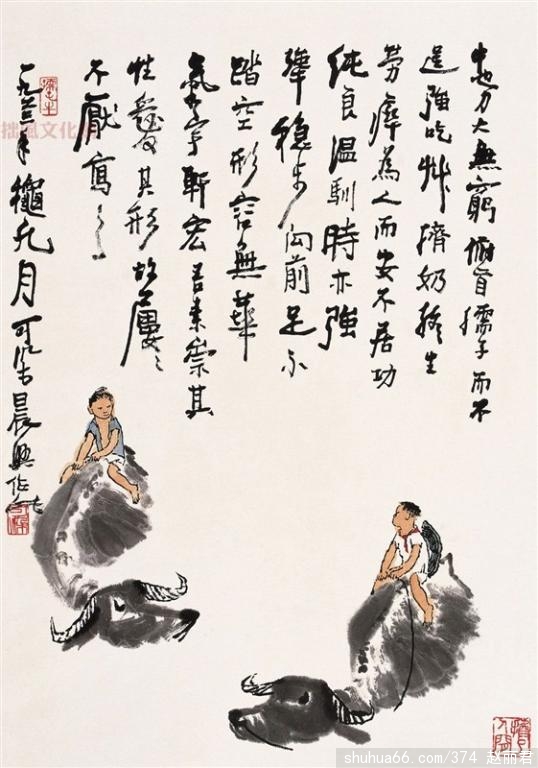 牛也力大無窮俯首孺子而不
逞強吃草擠奶終生
勞瘁為人而安不居功
純良溫馴時亦強
犟穩步向前足不
踏空形容無華
氣宇軒宏吾素崇其
性愛其形故屢々
不厭寫之
一九 三年龝九月可染晨興作
拙風文化
shuhua66.com/374 赵丽君